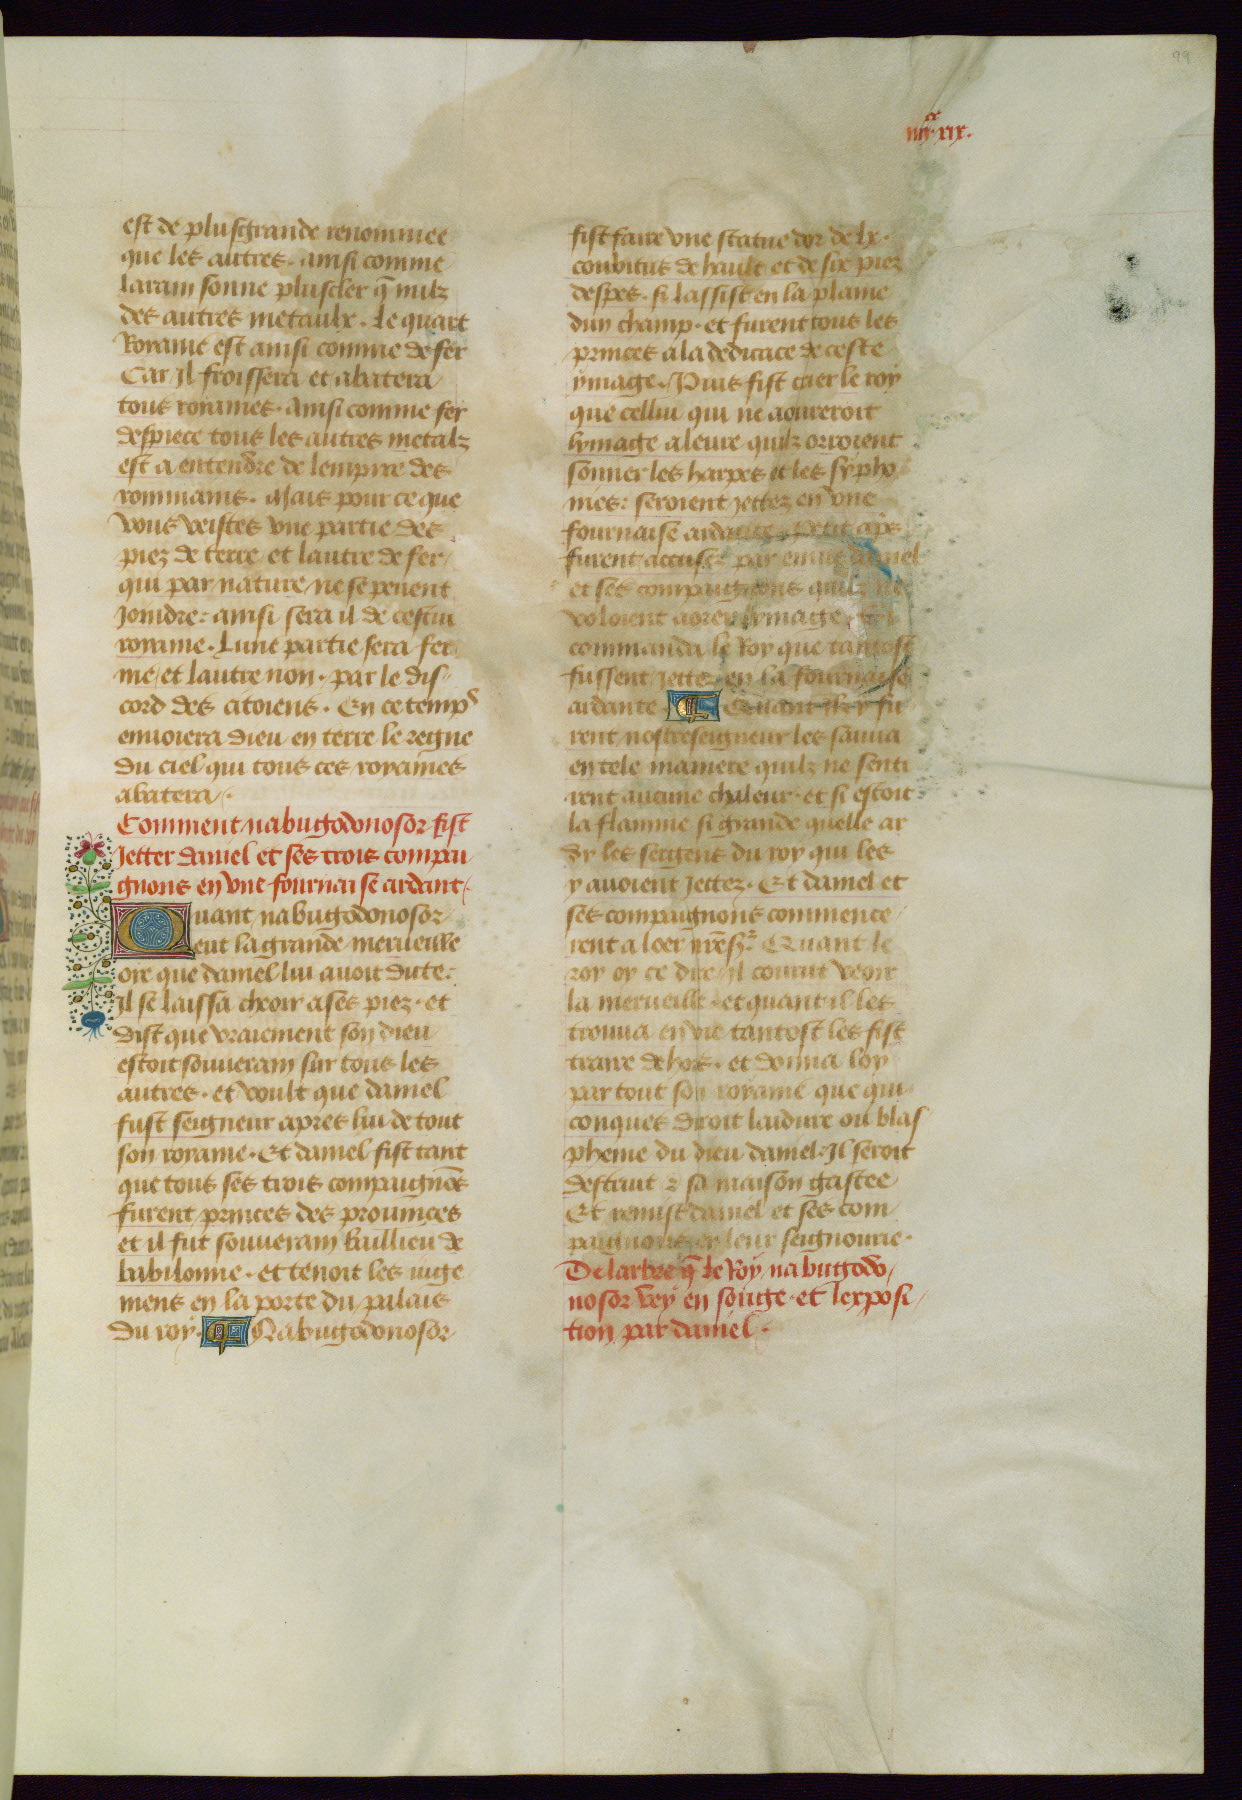 99
iiijc xix.
est de plusgrande renommee
que les autres. ainsi comme
larain sonne pluscler q̄ nulz
des autres metaulx. Le quart
Royame est ainsi comme de fer
Car Il froissera et abatera
tous royames. ainsi comme fer
despiece tous les autres metalz
est a entendre de lempire des
rommains. Mais pour ce que
vous veistes vne partie des
piez de terre et lautre de fer
qui par nature ne se peuent
Joindre: ainsi sera il de cestui
royame. Lune partie sera fer
me et lautre non. par le dis
cord des citoiens. En ce temps
enuoiera dieu en terre le regne
du ciel qui tous ces royames
abatera.
Comment nabugodonosor fist
Jetter daniel et ses trois compai
gnons en vne fournaise ardant
Quant nabugodonosor
eut la grande merueille
oye que daniel lui auoit dicte:
Il se laissa cheoir a ses piez. et
dist que vraiement son dieu
estoit souuerain sur tous les
autres. et voult que daniel
fust seigneur apres lui de tout
son royame. Et daniel fist tant
que tous ses trois compaignōs
furent princes des prouinces
et il fut souuerain baillieu de
babilonne. et tenoit les iuge
mens en la porte du palais
du roy. Nabugodonosor
fist faire vne statue dor de lx.
coubitus de hault et de six piez
despes. si lassist en la plaine
dun champ. et furent tous les
princes a la dedicace de ceste
ymage. Puis fist crier le roy
que cellui qui ne aoureroit
lymage a leure quilz orroient
sonner les harpes et les sypho
nies: seroient Jettez en vne
fournaise ardante. Petit apš
furent accusez par enuie daniel
et ses compaignons quilz ne
voloient aorer lymage.
commanda le Roy que tantost
fussent Jettez en la fournaise
ardante. Quant Ilz y fu
rent nostreseigneur les sauua
en tele maniere quilz ne senti
rent aucune chaleur. et si estoit
la flamme si grande quelle ar
dy les sergens du roy qui les
y auoient Jettez. Et daniel et
ses compaignons commence
rent a loer Quant le
roy oy ce dire Il courut veoir
la merueille. et quant il les
trouua en vie tantost les fist
traire dehors. et donna loy
par tout son royame que qui
conques diroit laidure ou blas
pheme du dieu daniel: Il seroit
destruit z sa maison gastee
Et remist daniel et ses com
paignons en leur seignourie.
De larbre q̄ le Roy nabugodo
nosor vey en songe. et lexposi
tion par daniel.